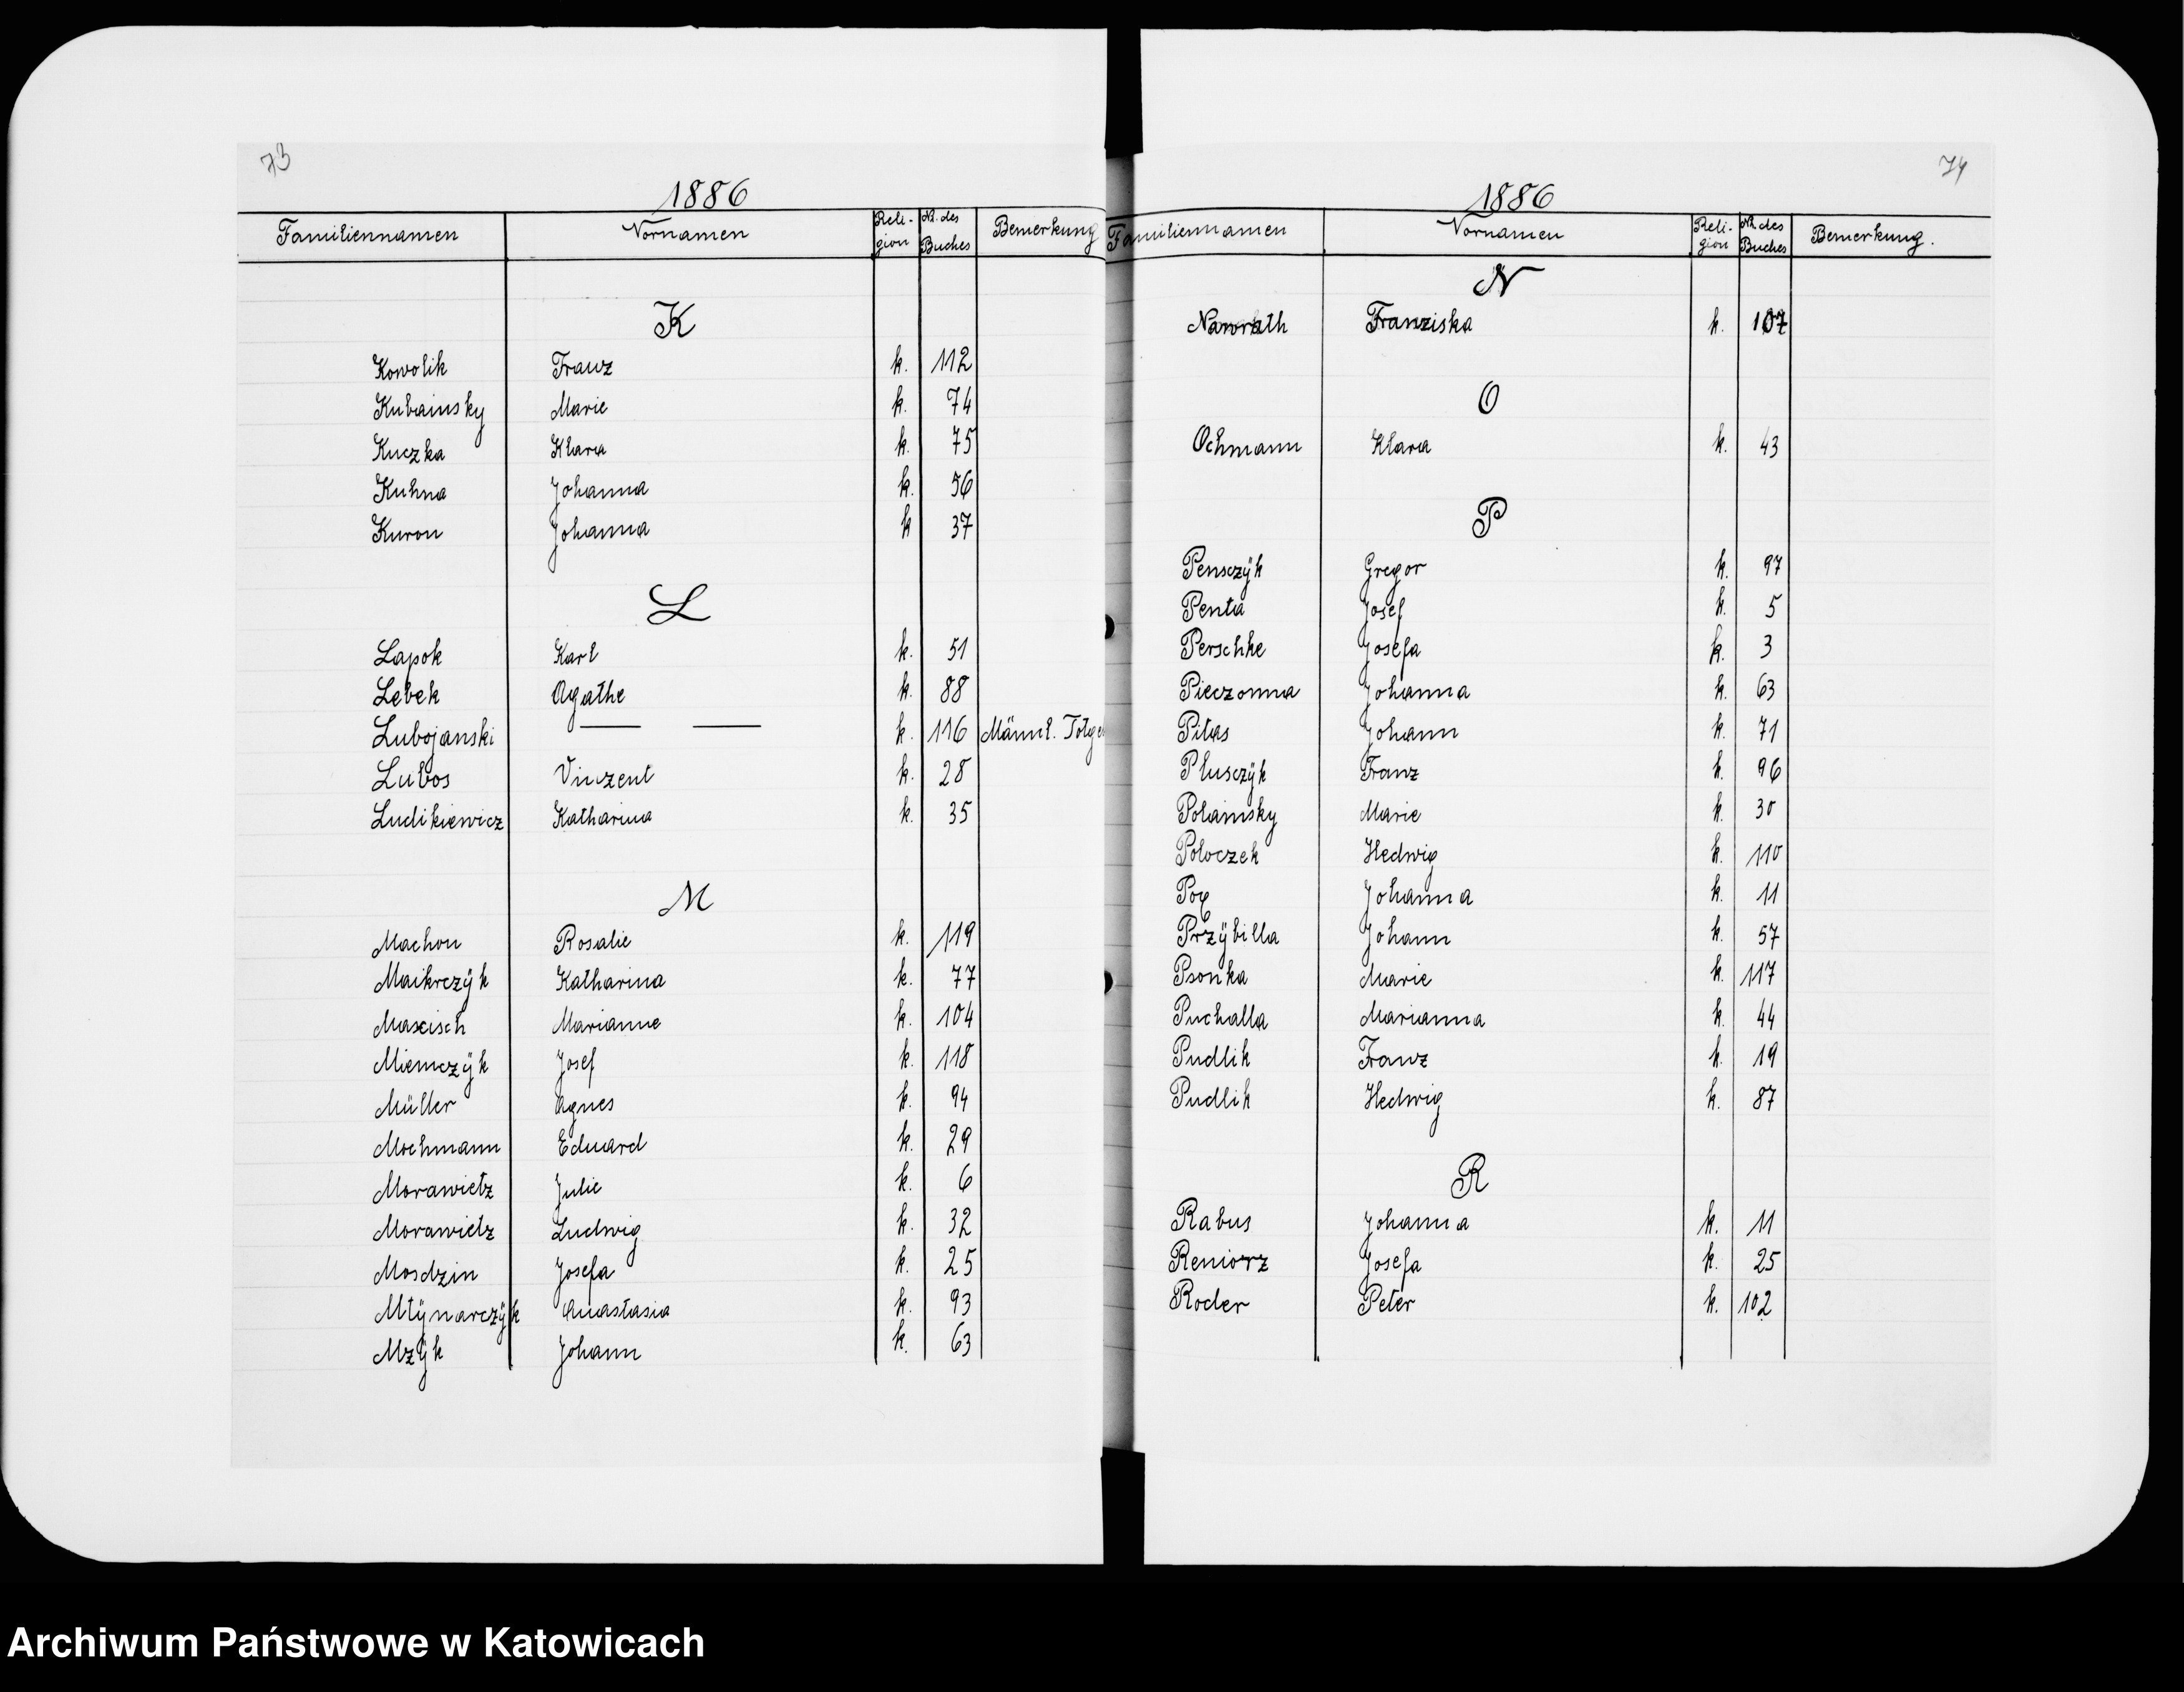 73
1886
Familiennamen Vornamen Religion Nr. des Buches Bemerkung
K
Kowolik Franz k. 112
Kubainsky Marie k. 74
Kuczka Klara k. 75
Kuhna Johanna k. 56
Kuron Johanna k 37
L
Lapok Karl k. 51
Lebek Agathe k. 88
Lubojanski — — k. 116 Männl. Totge
Lubos Vinzent k. 28
Ludikiewicz Katharina k. 35
M
Machon Rosalie k. 119
Maikrczÿk Katharina k. 77
Maxisch Marianne k. 104
Miemczÿk Josef k. 118
Müller Agnes k. 94
Mochmann Eduard k. 29
Morawietz Julie k. 6
Morawietz Ludwig k. 32
Mosdzin Josefa k. 25
Mlÿnarczÿk Anastasia k. 93
Mzÿk Johann k. 63
74
1886
Familiennamen Vornamen Religion Nr. des Buches Bemerkung.
N
Nawrath Franziska k. 107
O
Ochmann Klara k. 43
P
Pensczÿk Gregor k. 97
Penta Josef k. 5
Perschke Josefa k. 3
Pieczonna Johanna k. 63
Pilas Johann k. 71
Plusczÿk Franz k. 96
Polainsky Marie k. 30
Poloczek Hedwig k. 110
Pop Johanna k. 11
Przÿbilla Johann k. 57
Psonka Marie k. 117
Puchalla Marianna k. 44
Pudlik Franz k. 19
Pudlik Hedwig k. 87
R
Rabus Johanna k. 11
Reniorz Josefa k. 25
Roder Peter k. 102
Archiwum Państwowe w Katowicach